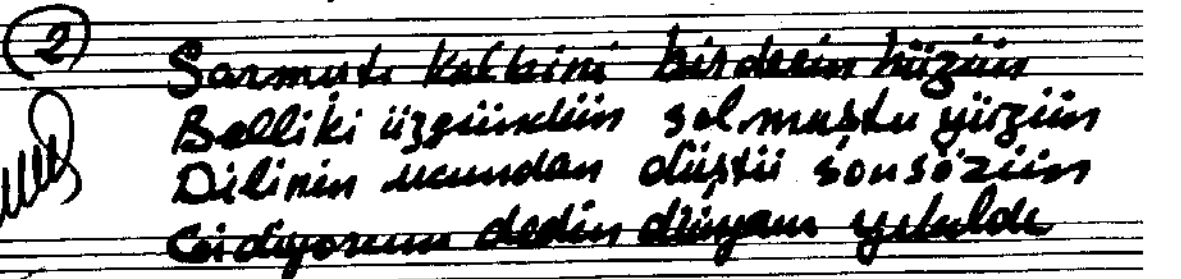 2
Sarmıştı kalbini bir derin hüzün
Belliki üzgündün solmuştu yüzün
Dilinin ucundan düştü son sözün
Gidiyorum dedin dünyam yıkıldı